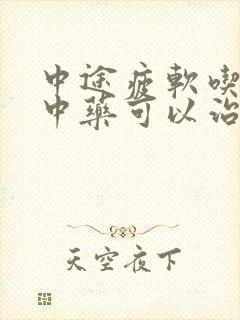 中途疲軟喫
中藥可以治
天空夜下